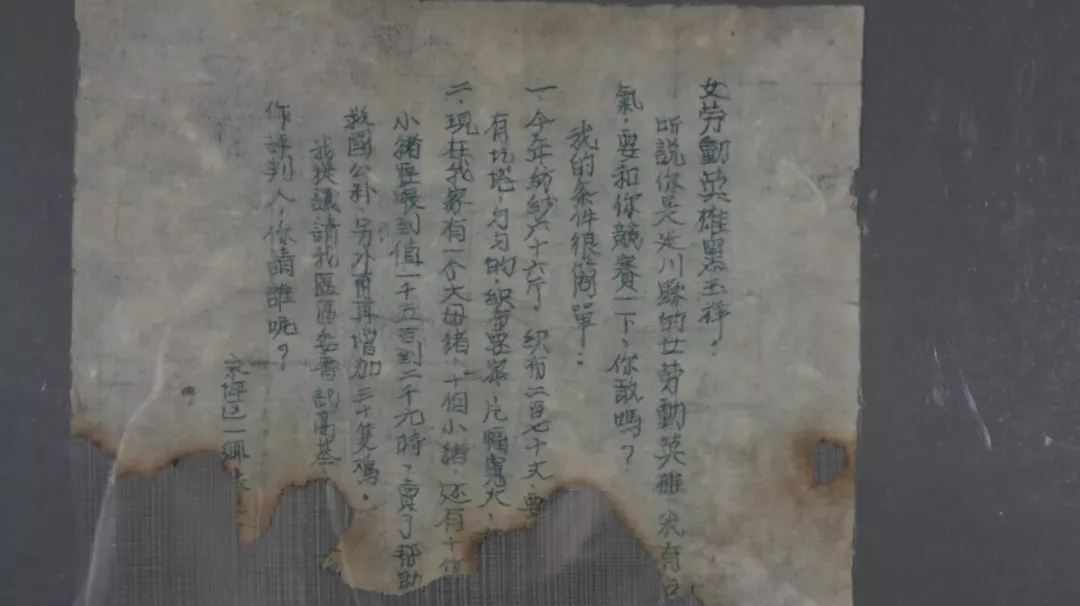 女劳動英雄黑玉祥：
听説你是延川縣的女劳動英雄 我有
氣，要和你競賽一下、你敢嗎？
我的条件很简單：
一、今年紡紗六十六斤，織布二百七十丈，要
有圪塔，匀匀的，織布要 ，片幅寬大，
二、現在我家有一个大母猪，十個小猪，还有十個
小猪 到值一千五百到二千元時，賣了帮助
救國公粮、另外 再增加三十隻鸡。
我提議請我區區委書記高基
作評判人，你請誰呢？
區一鄉